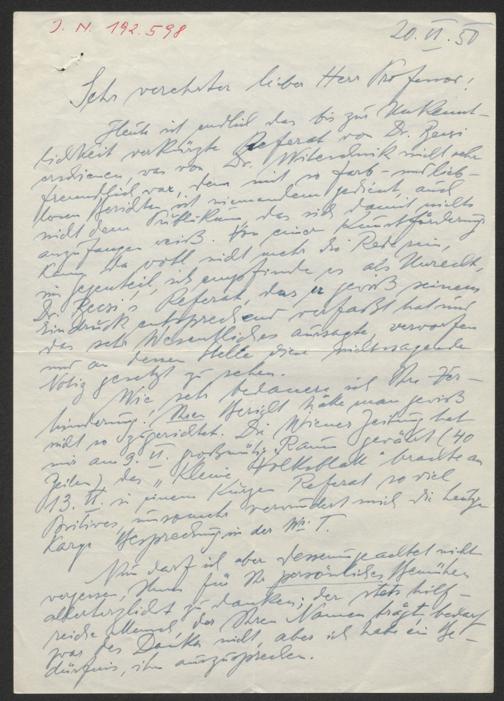 J. N. 192.598
20. VI. 50
Sehr verehrter lieber Herr Professor!
Heute ist endlich das bis zur Unkennt-
lichkeit verkürzte Referat von Dr. Reesi
erschienen, was von Dr. Witeschnik nicht sehr
freundlich war, denn mit so farb- und lieb-
losen Berichten ist niemandem gedient, auch
nicht dem Publikum, das sich damit nichts
anzufangen weiß. Von einer Kunstförderung
kann da wohl nicht mehr die Rede sein,
im Gegenteil, ich empfinde es als Unrecht,
Dr. Reesi's Referat, das er gewiß seinem
Eindruck entsprechend verfaßt hat und
das sehr Wesentliches aussagte, verworfen
und an dessen Stelle diese nichtssagende
Notiz gesetzt zu sehen.
Wie sehr bedauere ich Ihre Ver-
hinderung! Ihren Bericht hätte man gewiß
nicht so zugerichtet. Die Wiener Zeitung hat
mir am 9. VI. großmütig Raum gewährt (40
Zeilen), das "Kleine Volksblatt" brachte am
13. VI. in einem kurzen Referat so viel
Positives, umsomehr verwundert mich die heutige
karge Besprechung in der
Nun darf ich aber dessenungeachtet nicht
vergessen, Ihnen für Ihr persönliches Bemühen
allerherzlichst zu danken; der stets hilf-
reiche Mensch, der Ihren Namen trägt, bedarf
zwar des Dankes nicht, aber ich habe ein Be-
dürfnis, ihn auszusprechen.